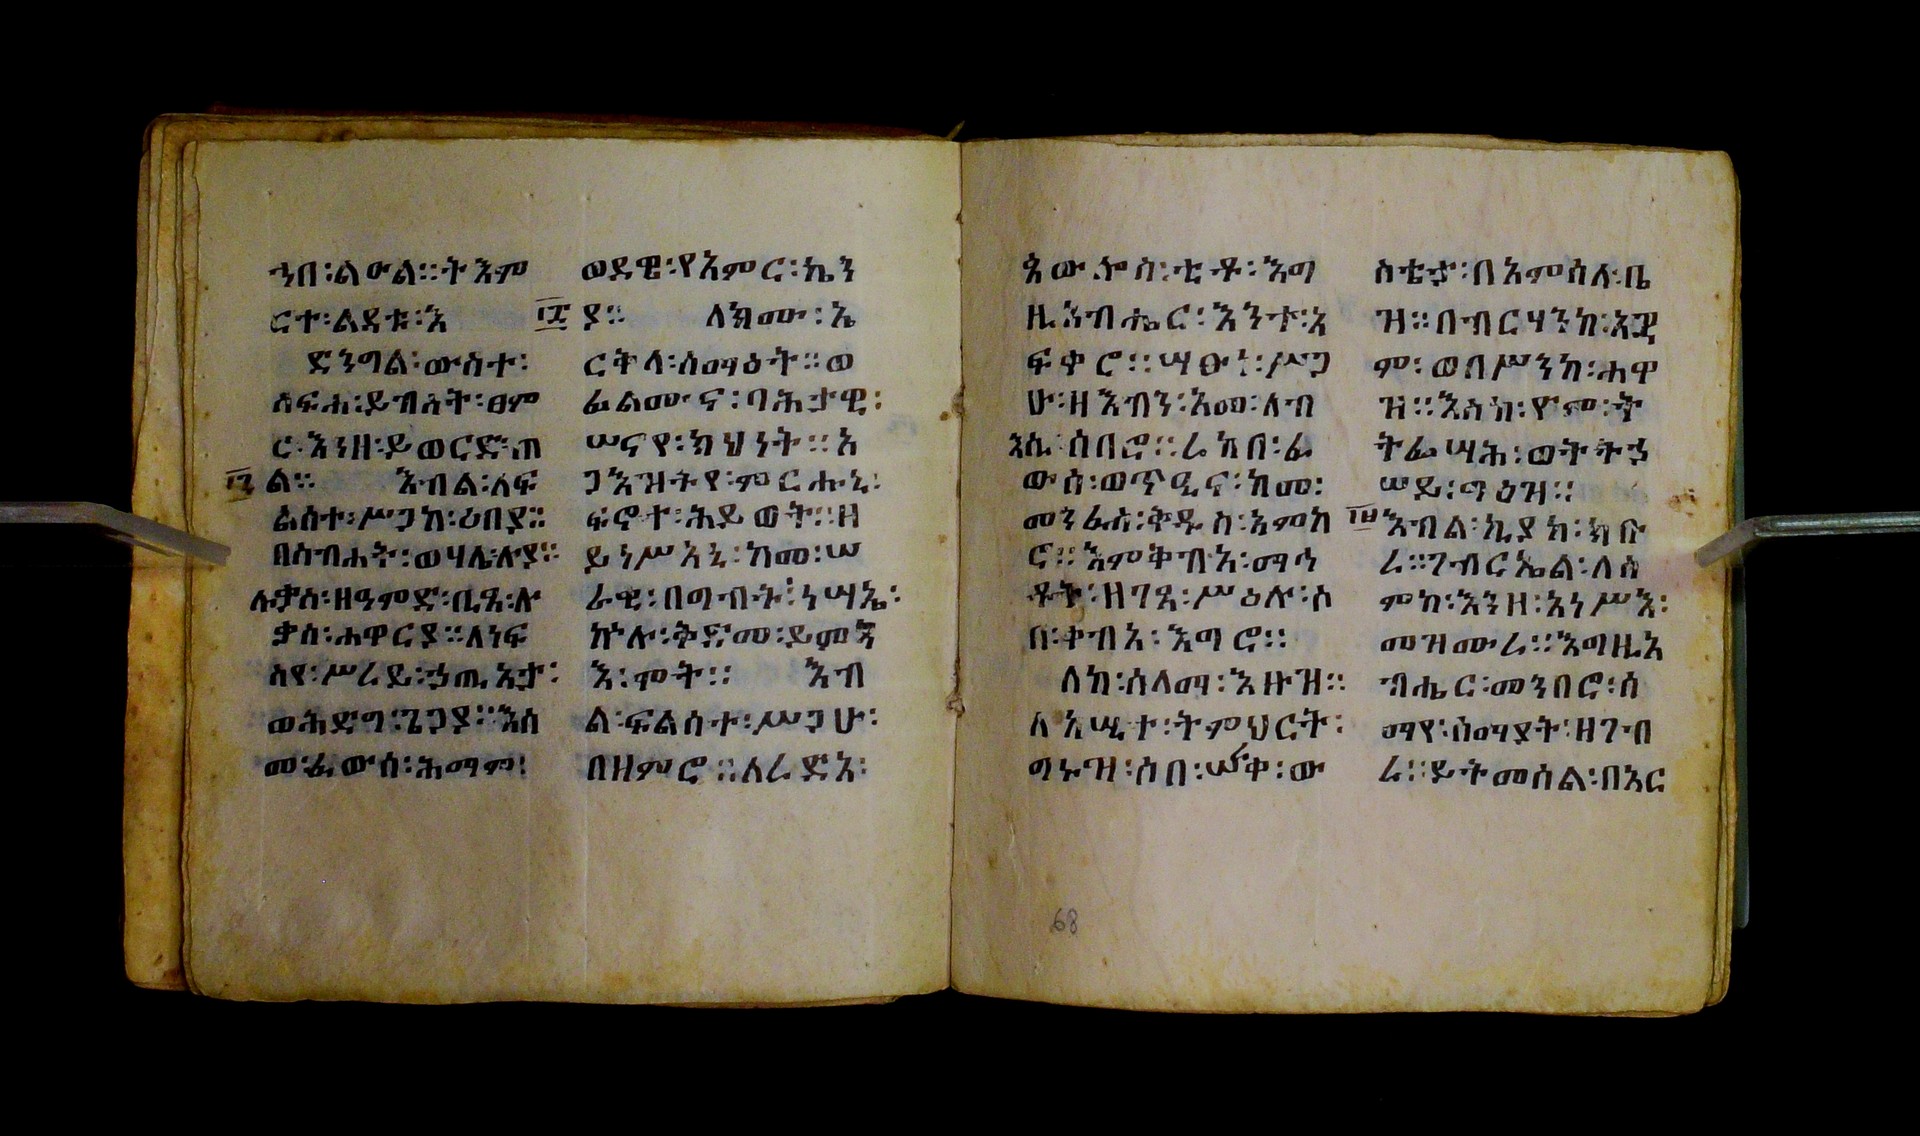 ኀበ፡ልዑል። ትእም
ርተ፡ልደቱ፡እ
ድንግል፡ውስተ፡
ሰፍሐ፡ይብጻት፡ፀም
ር፡እንዘ፡ይወርድ፡ጠ
፲፫ ል። እብል፡ለፍ
ልሰተ፡ሥጋከ፡ዕበያ።
በስብሐት፡ወሃሌሉያ።
ሉቃስ፡ዘዓምድ፡ቢጸ፡ሉ
ቃስ፡ሐዋርያ። ለነፍ
ስየ፡ሥረይ፡ኃጢአታ፡
ወሕድግ፡ጌጋያ። እስ
መ፡ፈውሰ፡ሕማም፡
ወደዊ፡የአምር፡ኬን
፲፬ ያ። ለክሙ፡ኤ
ርትላ፡ሰማዕት። ወ
ፊልሙና፡ባሕታዊ፡
ሠናየ፡ክህነት። አ
ጋእዝትየ፡ምርሑኒ፡
ፍኖተ፡ሕይወት። ዘ
ይነሥአኒ፡ከመ፡ሠ
ራዊ፡በግብት፡ነሣኤ፡
ኵሉ፡ቅድመ፡ይምጻ
እ፡ሞት። እብ
ል፡ፍልሰተ፡ሥጋሁ፡
በዘምሮ። ለረድአ፡
ጳውሎስ፡ቲቶ፡እግ
ዚአብሔር፡እንተ፡አ
ፍቀሮ። ሣፁነ፡ሥጋ
ሁ፡ዘእብን፡አመ፡ለብ
እሲ፡ሰበሮ። ረከበ፡ፈ
ውሰ፡ወጥዒና፡ከመ፡
መንፈስ፡ቅዱስ፡አምከ
ሮ። እምቅብአ፡ማኅ
ቶት፡ዘገጸ፡ሥዕሉ፡ሶ
በ፡ቀብአ፡እግሮ።
ለከ፡ሰላማ፡እዙዝ።
ለአሢተ፡ትምህርት፡
ግኑዝ፡ሰበ፡ሠረቀ፡ው
ስቴታ፡በአምሳሉ፡ቤ
ዝ። በብርሃንከ፡አዳ
ም፡ወበሥንከ፡ሐዋ
ዝ። እስከ፡ዮም፡ት
ትፌሣሕ፡ወትትኃ
ሠይ፡ግዕዝ።
፲፭ እብል፡ኪያከ፡ክቡ
ረ። ገብርኤል፡ለስ
ምከ፡እንዘ፡አነሥእ፡
መዝሙረ። እግዚአ
ብሔር፡መንበሮ፡ሰ
ማየ፡ሰማያት፡ዘገብ
ረ። ይትመሰል፡በአር
68